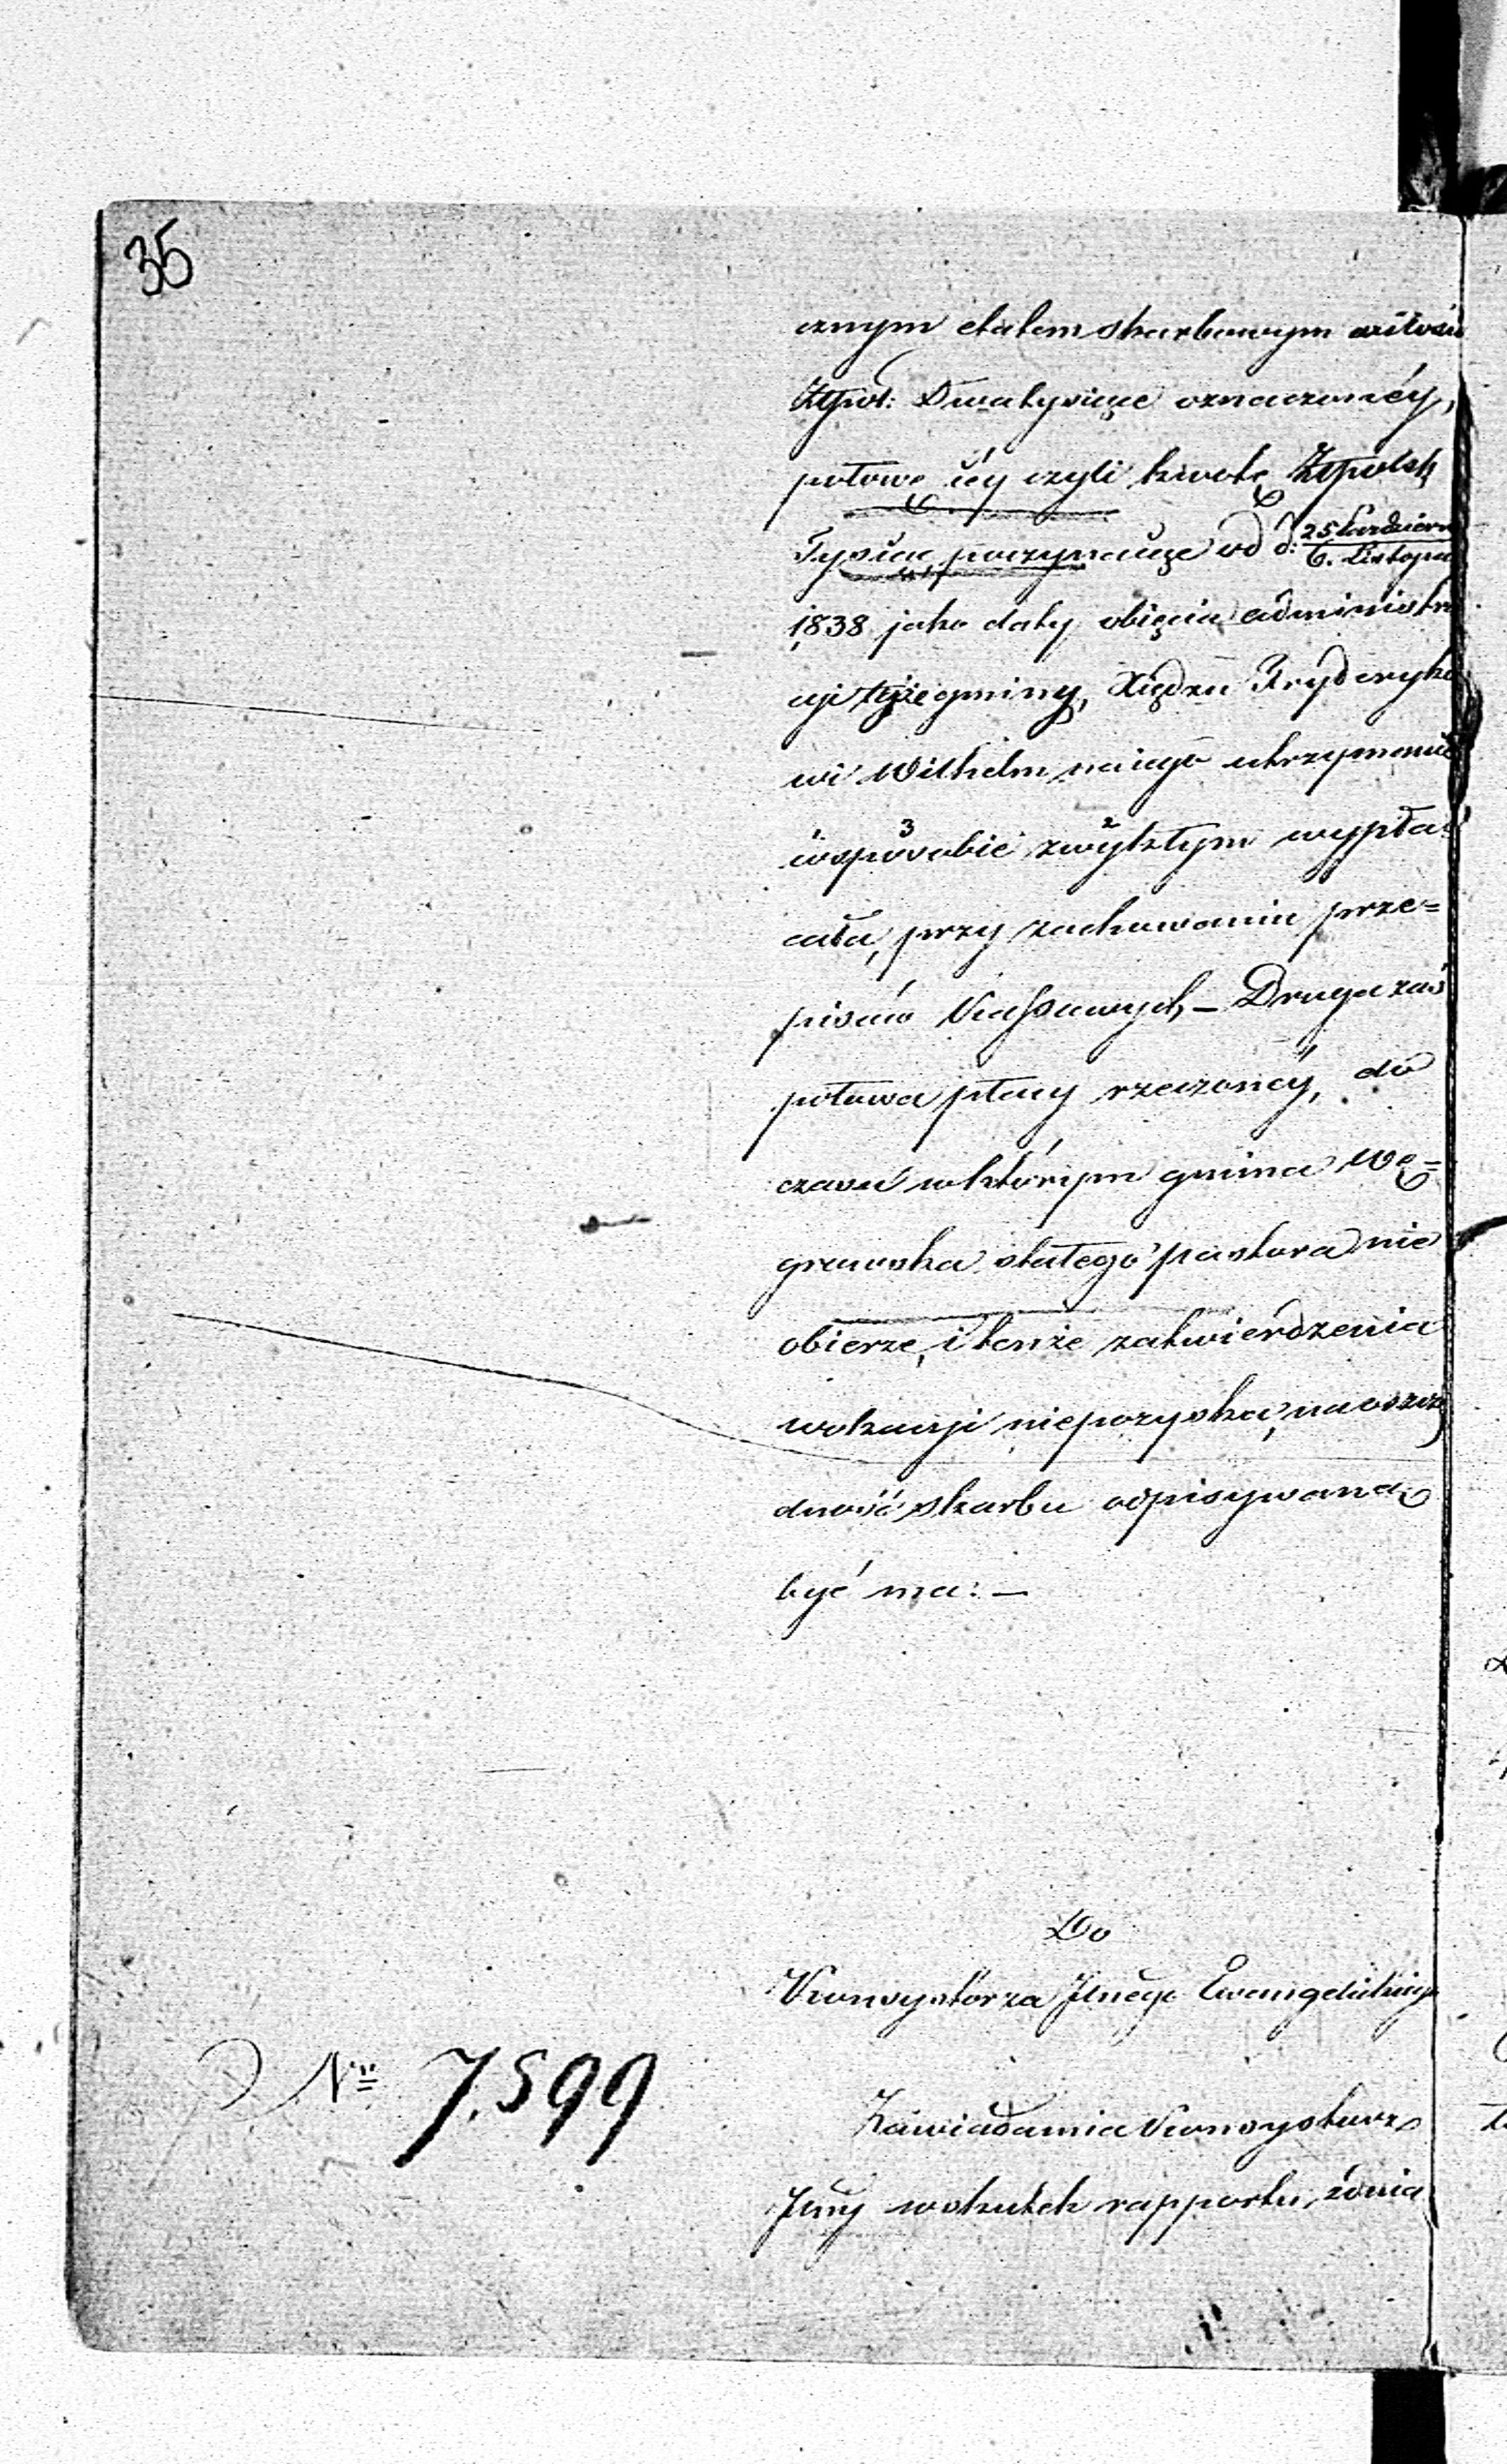 35
cznym etatem skarbowym w ilości
Złtpol: Dwa tysiące oznaczonéy,
połowę iéy czyli kwotę Złtpolsk
Tysiąc, poczynaiąc od d: 25 Październ
6. Listopa
1838 jako daty obięcia administra
cji tejże gminy, Xiędzu Fryderyko
wi Wilhelm na iego utrzymanie
w sposobie 3 zwykłym 2 wypła
cała, przy zachowaniu prze=
pisów Kassowych, – Druga zaś
połowa płacy rzeczonéy, do
czasu w którym gmina Wę=
growska stałego pastora nie
obierze, i tenże zatwierdzenia
wokacji niepozyska, na oszczę
dność skarbu odpisywaną
być ma: –
Do
Konsystorza Jlnego Ewangelickiego
No 7.599
Zawiadamia Konsystorz
Jlny wskutek rapportu, z dnia